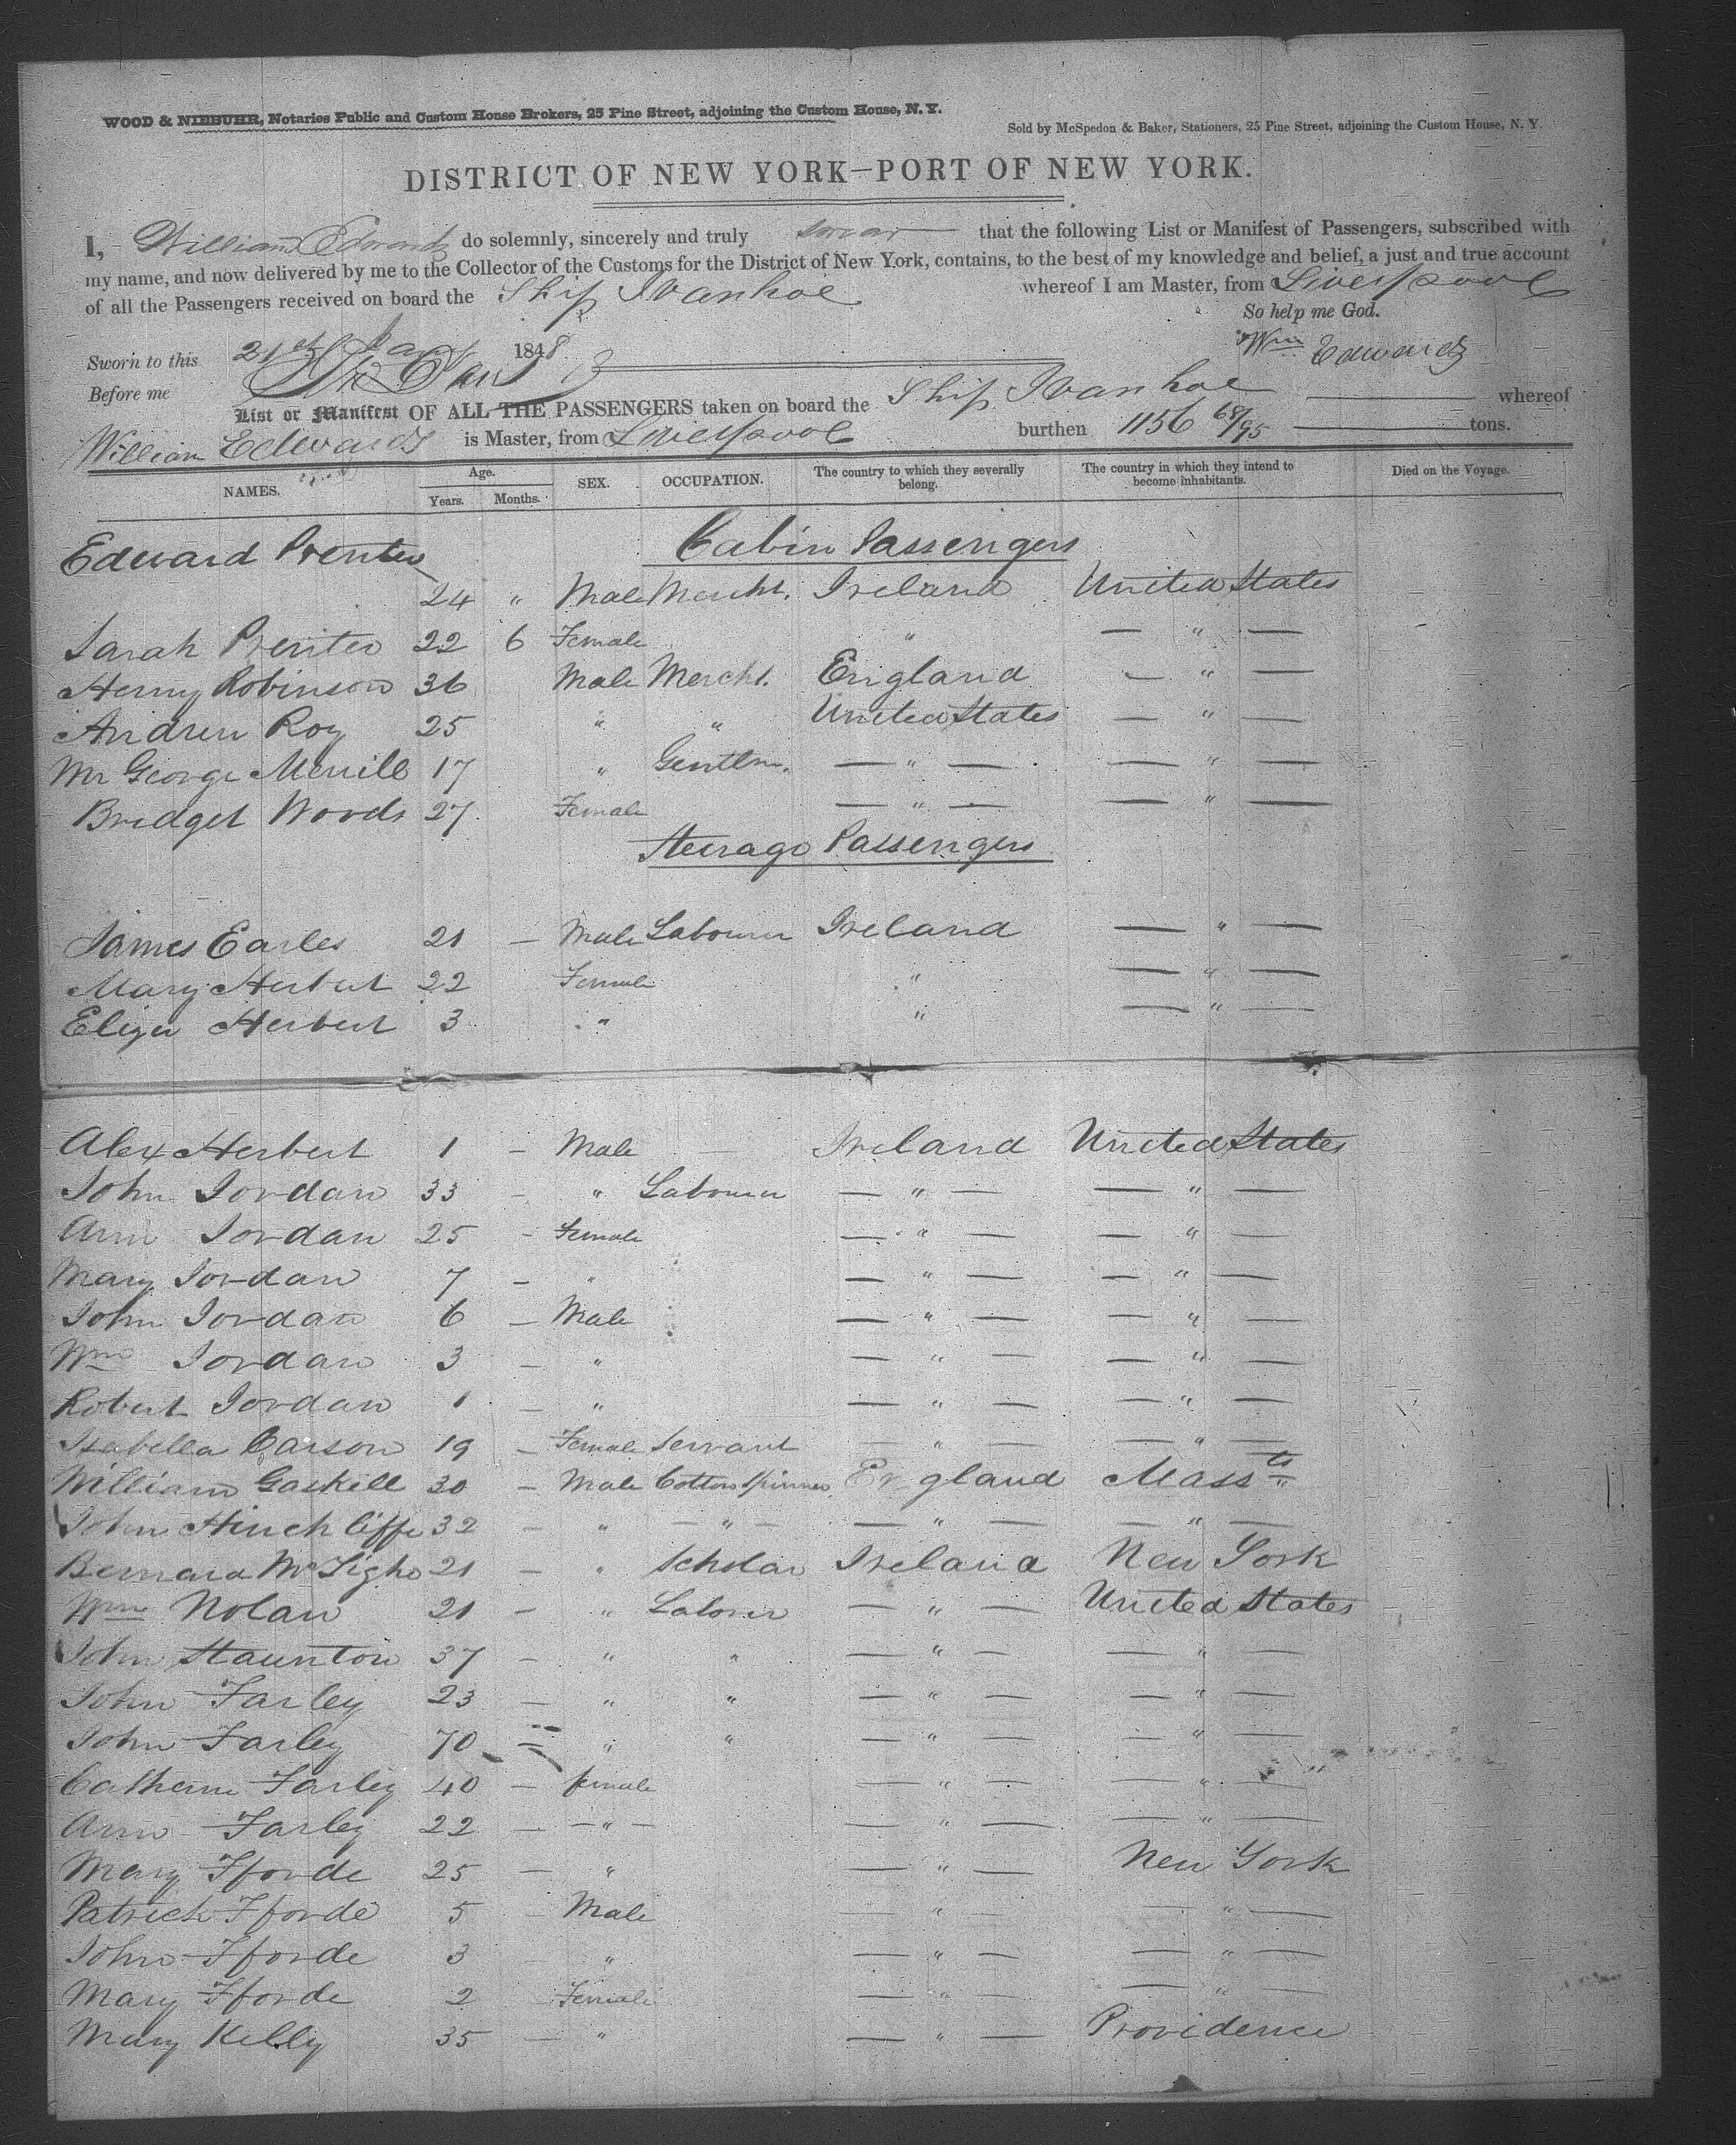 WOOD & NIEBUHR, Notaries Public and Custom House Brokers, 25 Pine Street, adjoining the Custom House, N. Y.
Sold by McSpedon & Baker, Stationers, 25 Pine Street, adjoining the Custom House, N. Y.
DISTRICT OF NEW YORK—PORT OF NEW YORK.
I, William Edwards do solemnly, sincerely and truly swear that the following List or Manifest of Passengers, subscribed with
my name, and now delivered by me to the Collector of the Customs for the District of New York, contains, to the best of my knowledge and belief, a just and true account
of all the Passengers received on board the Ship Ivanhoe whereof I am Master, from Liverpool
So help me God.
Sworn to this 21st 1848
Wm Edwards
Before me
List or Manifest OF ALL THE PASSENGERS taken on board the Ship Ivanhoe whereof
William Edwards is Master, from Liverpool burthen 1156 68/95 tons.
NAMES. Age. Years. Months. SEX. OCCUPATION. The country to which they severally belong. The country in which they intend to become inhabitants. Died on the Voyage.
Cabin Passengers
Edward Prenter
24 " Male Mercht. Ireland United States
Sarah Prenter 22 6 Female " — " —
Henry Robinson 36 Male Mercht. England — " —
Andrew Roy 25 " " United States — " —
Mr George Merrill 17 " Gentlm. — " — — " —
Bridget Woods 27 Female — " — — " —
Steerage Passengers
James Earles 21 — Male Labourer Ireland — " —
Mary Herbert 22 Female " — " —
Eliza Herbert 3 " " — " —
Alex Herbert 1 — Male — Ireland United States
John Jordan 33 — " Labourer — " — — " —
Ann Jordan 25 — Female — " — — " —
Mary Jordan 7 — " — " — — " —
John Jordan 6 — Male — " — — " —
Wm Jordan 3 — " — " — — " —
Robert Jordan 1 — " — " — — " —
Isabella Carson 19 — Female Servant — " — — " —
William Gaskell 30 — Male Cotton Spinner England Massts
John Hinchliffe 32 — " — " — — " — — " —
Bernard McTighe 21 — " Scholar Ireland New York
Wm Nolan 21 — " Laborer — " — United States
John Staunton 37 — " " — " — — " —
John Farley 23 — " " — " — — " —
John Farley 70 — " " — " — — " —
Catherine Farley 40 — female — " — — " —
Ann Farley 22 — — " — — " — — " —
Mary Fforde 25 — " — " — New York
Patrick Fforde 5 — Male — " — — " —
John Fforde 3 — " — " — — " —
Mary Fforde 2 — Female — " — — " —
Mary Kelly 35 — " — " — Providence